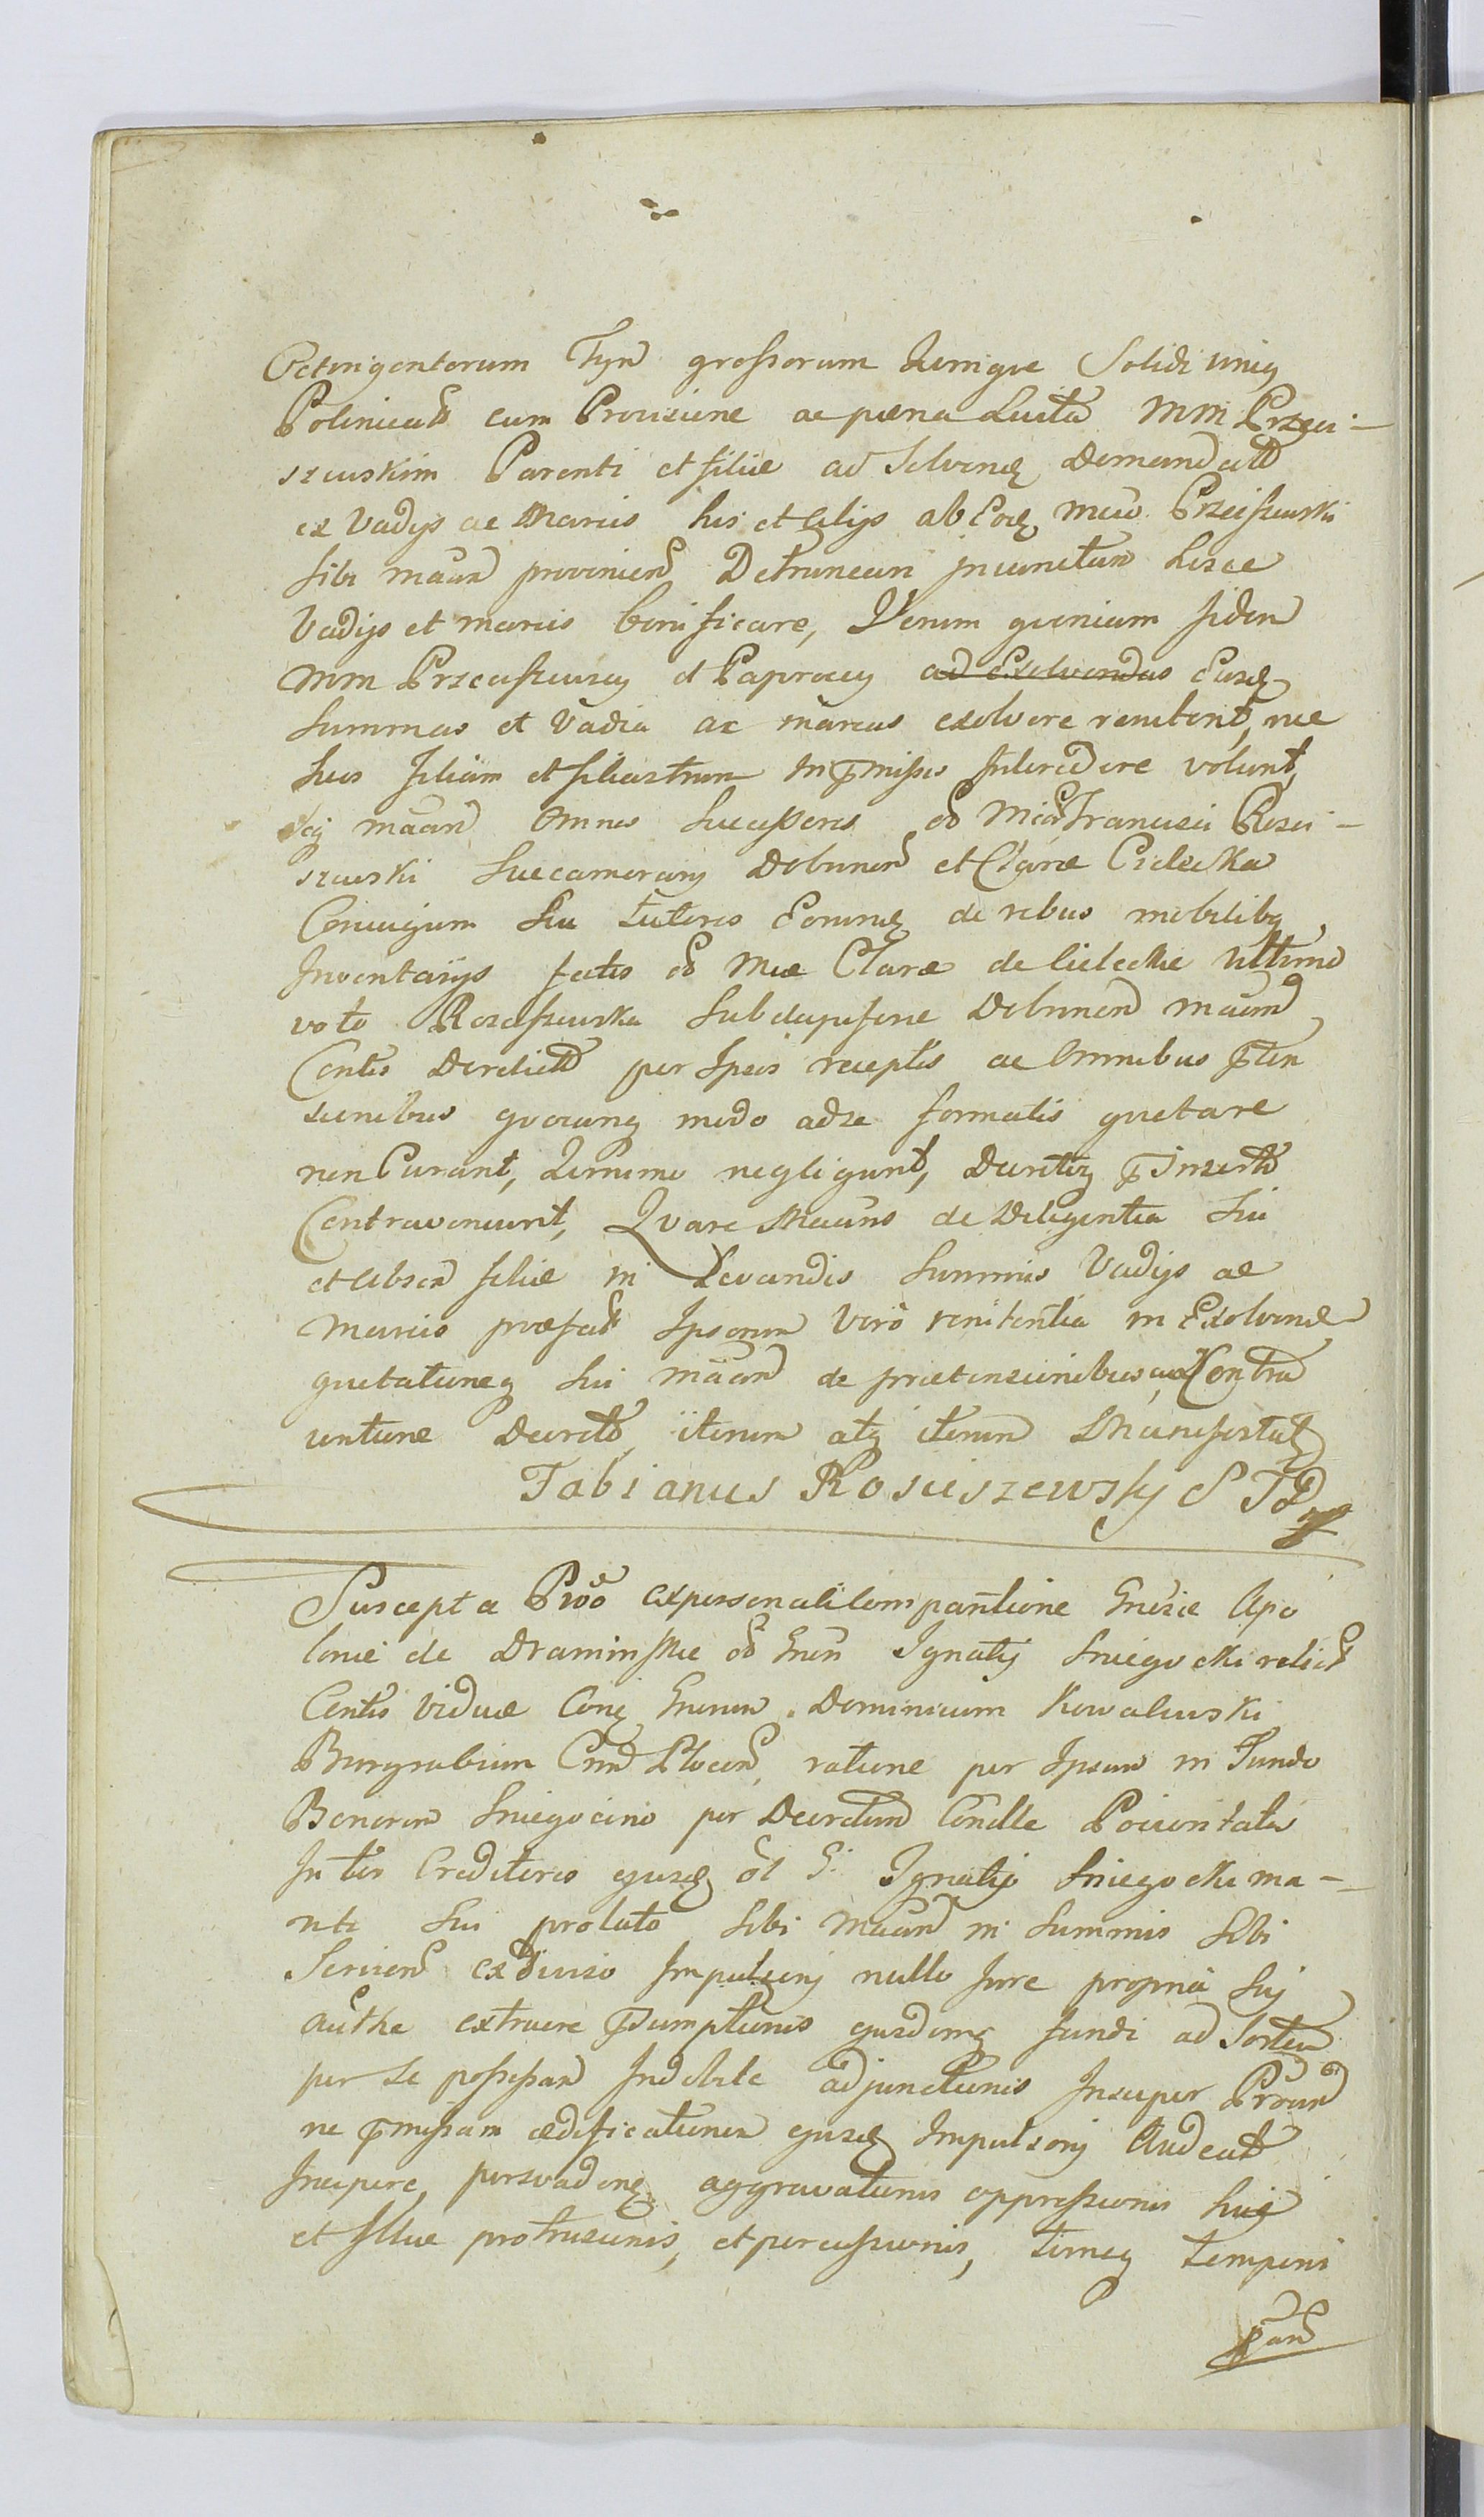 Octingentorum Tyn grossorum Sernique Solidi uniq
Polinicalt cum Provisione ac pæna Luita MM Przeci-
szewskim Parenti et filiæ ad Solvend Demandatt
ex Vadijs ac Marcis his et alijs ab Eod Mco Przeciszewski
sibi mãan provinien Detruncari injunctum hisce
Vadijs et marcis bonificare, Verum quoniam fiden
MM Przeciszewscy et Paproccy ad Exolvendas Eusd
Summas et Vadia ac marcas exolvere renitent, nec
suos filiam et filiastrum in p̃missis Intercedere volunt,
mãan Omnes Successores oð Mcor Francisci Rosci-
szewski Succamerarij Dobrinen et Claræ Cieleckæ
Coniugum seu tutores Eorund de rebus mobilibq
Inventarijs fectis oð Mcæ Claræ de Cieleckie Ultimo
voto Rosciszewska Subdapiferæ Dobrinen mãan
Contis Derelictt per Ipsos receptis ac Omnibus p̃ten
sionibus quocunq modo adse formatis quetare
non Curant, Imimo negligunt, Decretoq p̃Inserto
Contraveniunt, Quare Maãns de Diligentia Sui
et Absen filiæ in Levandis Summis Vadijs ac
Marcis præfatt Ipsorum Vero renitentia in Exolvend
quetationeq sui mãan de prætensionibus, ac Contra
ventione Decreto, iterum atq iterum Manifestat
Fabianus Rosciszewsky S T D
Suscepta Proõ ex personali Compantione Gnosæ Apo
loniæ de Draminskie oð Gnen Ignatij Sniegocki relict
Contis Viduæ Conq Gnorum Dominicum Kowalewski
Burgrabium Cnd Plocen, ratione per Ipsum in Fundo
Bonorum Sniegocino per Decretum Condlle Poioritatis
Inter Creditores ejusd ol G: Ignatij Sniegocki ma-
riti Sui prolato Sibi mãan in Summis Sibi
Servien ex diviso Impulsorij nullo Jure propriâ Suj
authe extruere p̃sumptionis ejusdemq fundi ad Sortem
per se possessam Indebite adjunctionis Insuper Proan
ne p̃missam ædificationem ejusd Impulsorij Audeatt
Incipere, persvadenq aggravationis oppressionis huc
et Illuc protrusionis, et percussionis, Tumq temporis
P̃an